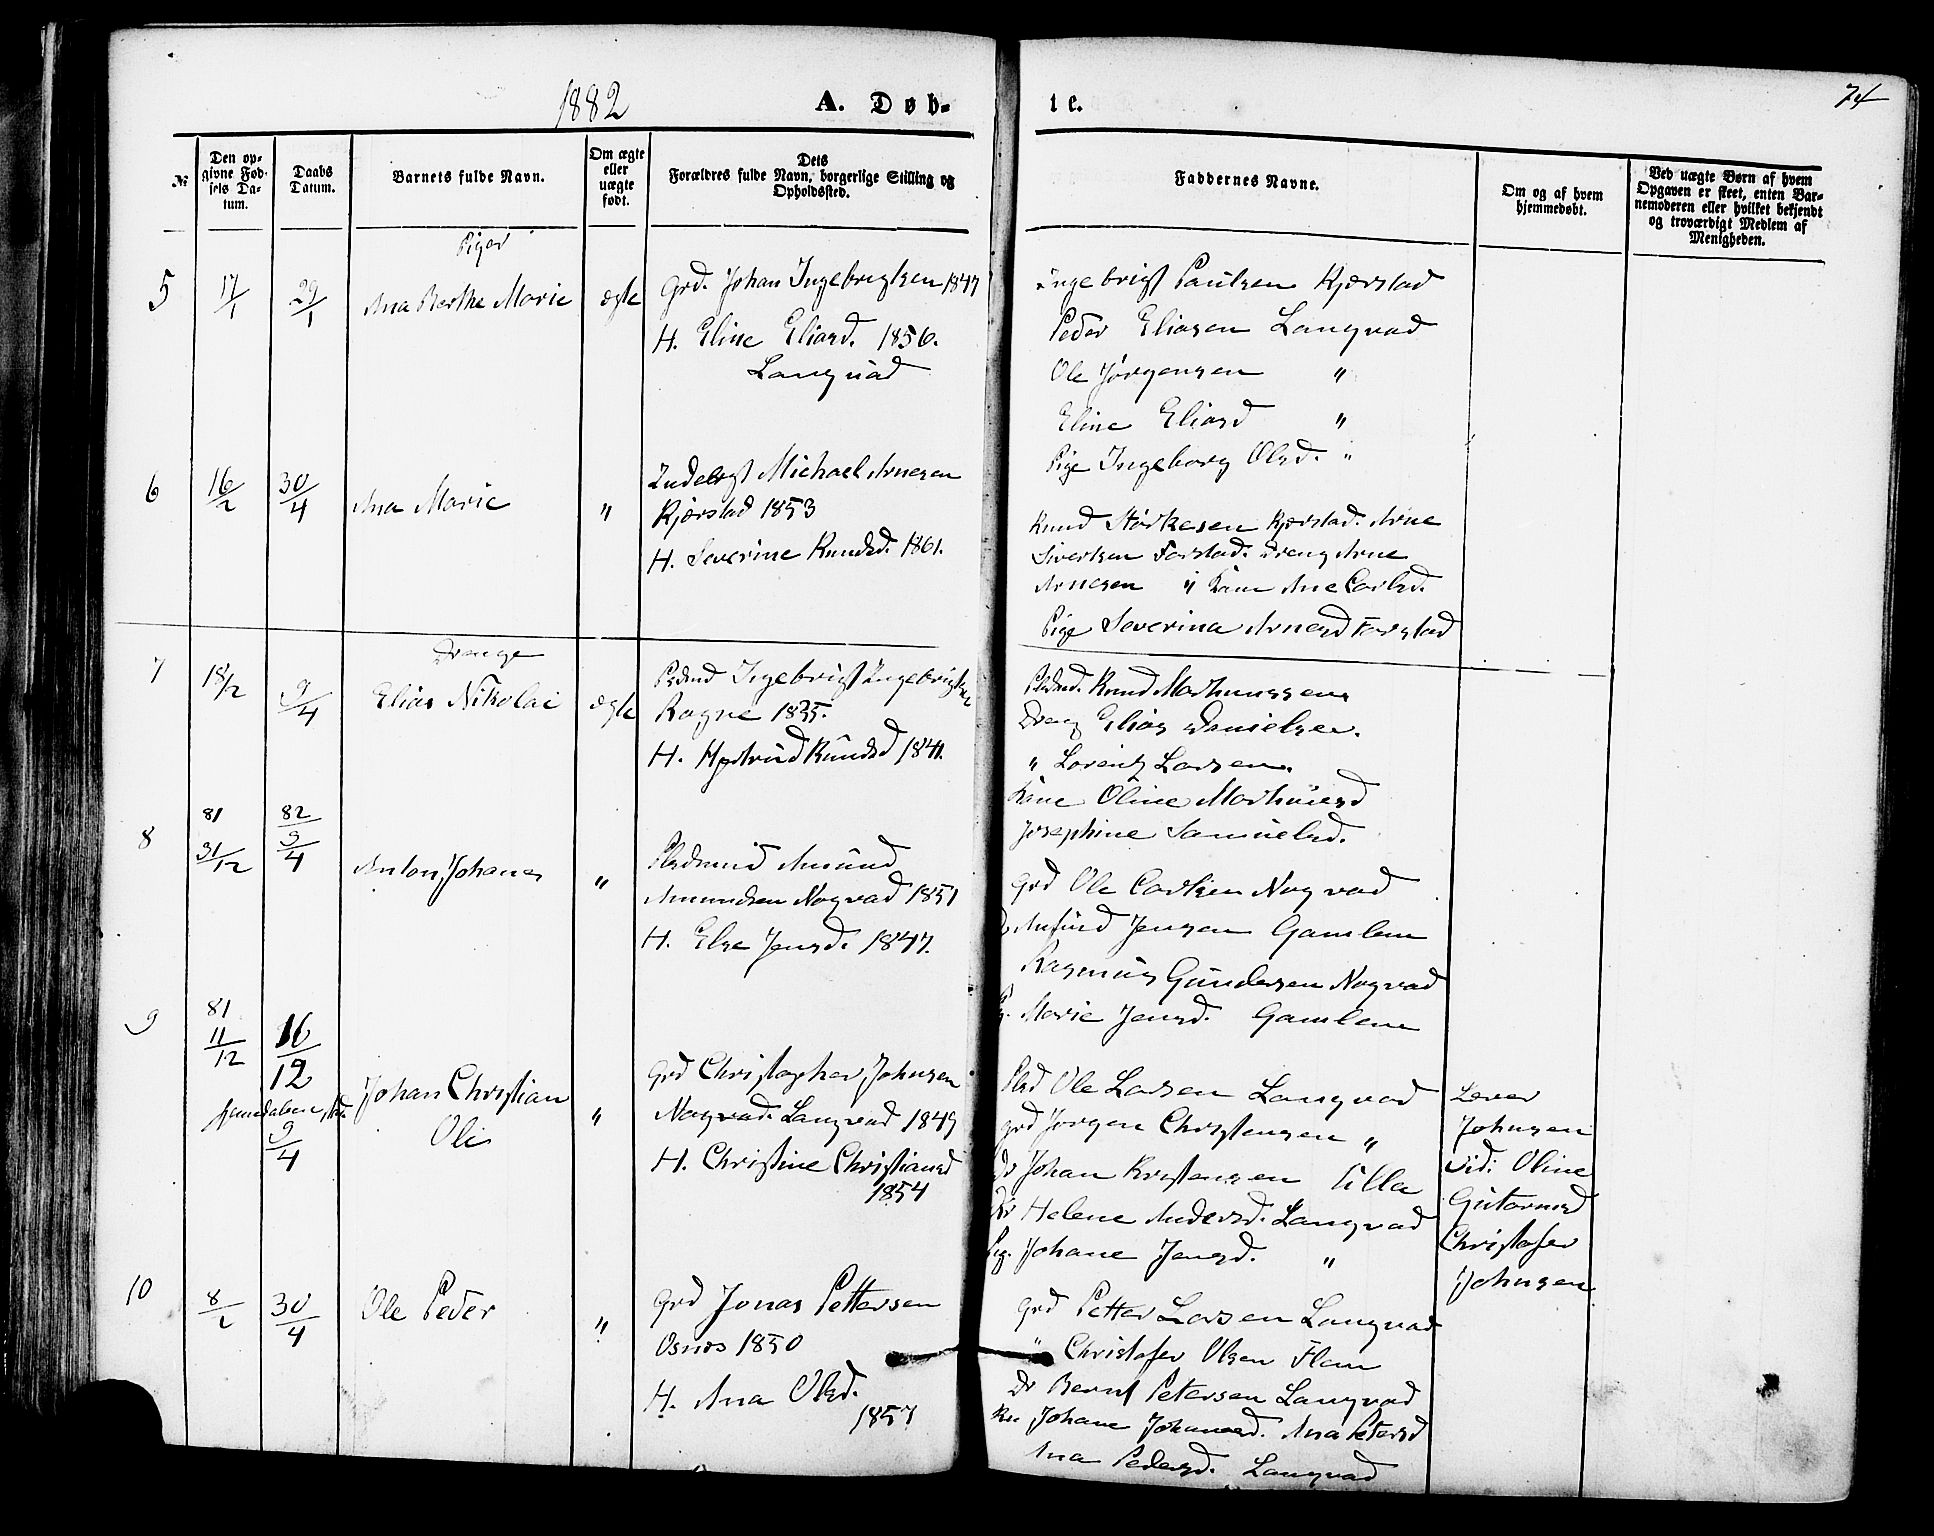 1882
A. Døb-
te.
74
№
Den op-
givne Fød-
sels Da-
tum.
Daabs
Datum.
Barnets fulde Navn.
Om ægte
eller
uægte
født.
Dets
Forældres fulde Navn, borgerlige Stilling og
Opholdssted.
Faddernes Navne.
Om og af hvem
hjemmedøbt.
Ved uægte Børn af hvem
Opgaven er skeet, enten Bar-
nemoderen eller hvilket bekjendt
og troværdigt Medlem af
Menigheden.
Piger
5
17/1
29/1
Ana Berthe Marie
ægte
Grd. Johan Ingebrigtsen 1847
H. Eline Eliasd. 1856.
Langvad
Ingebrigt Paulsen Kjærstad
Peder Eliasen Langvad
Ole Jørgensen "
Eline Eliasd "
Pige Ingeborg Olsd. "
6
16/2
30/4
Ana Marie
"
Inderst Michael Arnesen
Kjærstad 1853
H. Severine Knudsd. 1861.
Knud Størkesen Kjærstad. Arne
Sivertsen Farstad. Dreng Arne
Arnesen " Kone Ane Carlsd.
Pige Severina Arnesd Farstad
Drenge
7
18/2
9/4
Elias Nikolai
ægte
Pladsmd Ingebrigt Ingebrigtsen
Rogne 1835.
H. Gjertrud Knudsd 1841.
Pladsmd. Knud Mathiussen
Dreng Elias Danielsen.
" Lorents Larsen.
Kone Oline Mathiasd
Josephine Samuelsd.
8
81
31/12
82
9/4
Anton Johanes
"
Pladsmd Amund
Amundsen Nogvad 1851
H. Else Jensd. 1847.
Grd Ole Carlsen Nogvad
Amund Jensen Gamlem
Rasmus Gundersen Nogvad
Pg. Marie Jensd. Gamlem
9
81
11/12
16/12
hjemdaben
9/4
Johan Christian
Oli
"
Grd Christopher Johnsen
Nogvad. Langvad 1849
H. Christine Christiansd
1854
Plsd Ole Larsen Langvad
Grd Jørgen Christensen "
Dr Johan Kristensen Ulla
Helene Andersd. Langvad
Pig. Johane Jensd. "
Johnsen
Vid: Oline
Gutormsd
Christofer
Johnsen
10
8/2
30/4
Ole Peder
"
Grd Jonas Pettersen
Osnes 1850
H. Ana Olsd.
1857
Grd Petter Larsen Langvad
" Christofer Olsen Flem
Dr Bernt Petersen Langvad
Kn Johane Johansd. Ana Petersd
Ana Pedersd. Langvad